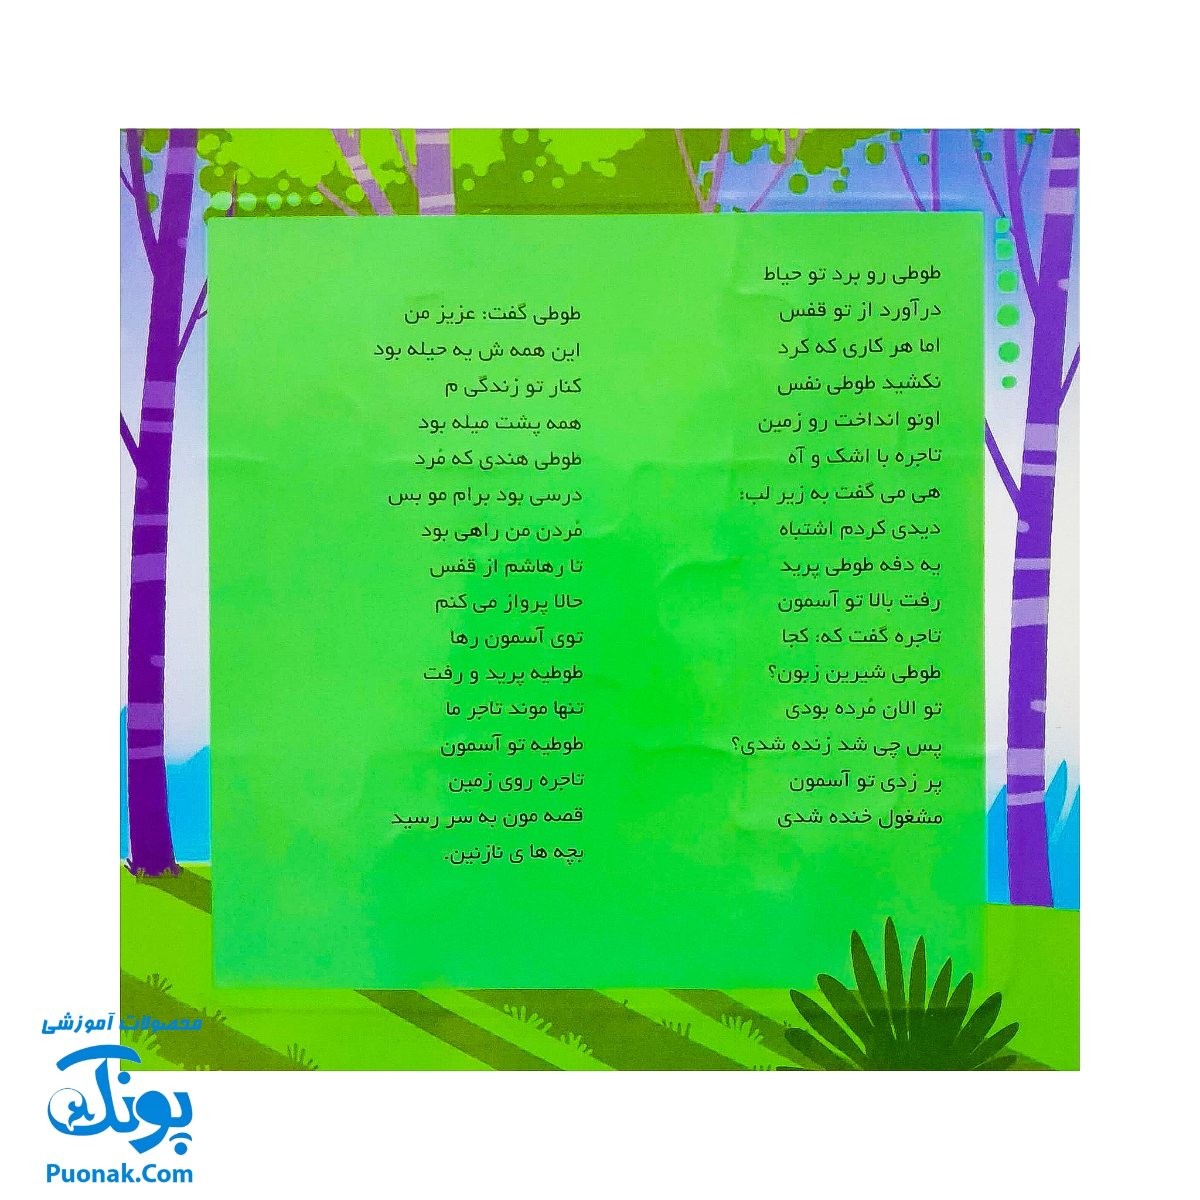 طوطی رو برد تو حیاط
درآورد از تو قفس
اما هر کاری که کرد
نکشید طوطی نفس
اونو انداخت رو زمین
تاجره با اشک و آه
هی می گفت به زیر لب:
دیدی کردم اشتباه
یه دفه طوطی پرید
رفت بالا تو آسمون
تاجره گفت که: کجا
طوطی شیرین زبون؟
تو الان مُرده بودی
پس چی شد زنده شدی؟
پر زدی تو آسمون
مشغول خنده شدی
طوطی گفت: عزیز من
این همه ش یه حیله بود
کنار تو زندگی م
همه پشت میله بود
طوطی هندی که مُرد
درسی بود برام مو بس
مُردن من راهی بود
تا رهاشم از قفس
حالا پرواز می کنم
توی آسمون رها
طوطیه پرید و رفت
تنها موند تاجر ما
طوطیه تو آسمون
تاجره روی زمین
قصه مون به سر رسید
بچه ها ی نازنین.
محصولات آموزشی
پونک
Puonak.Com